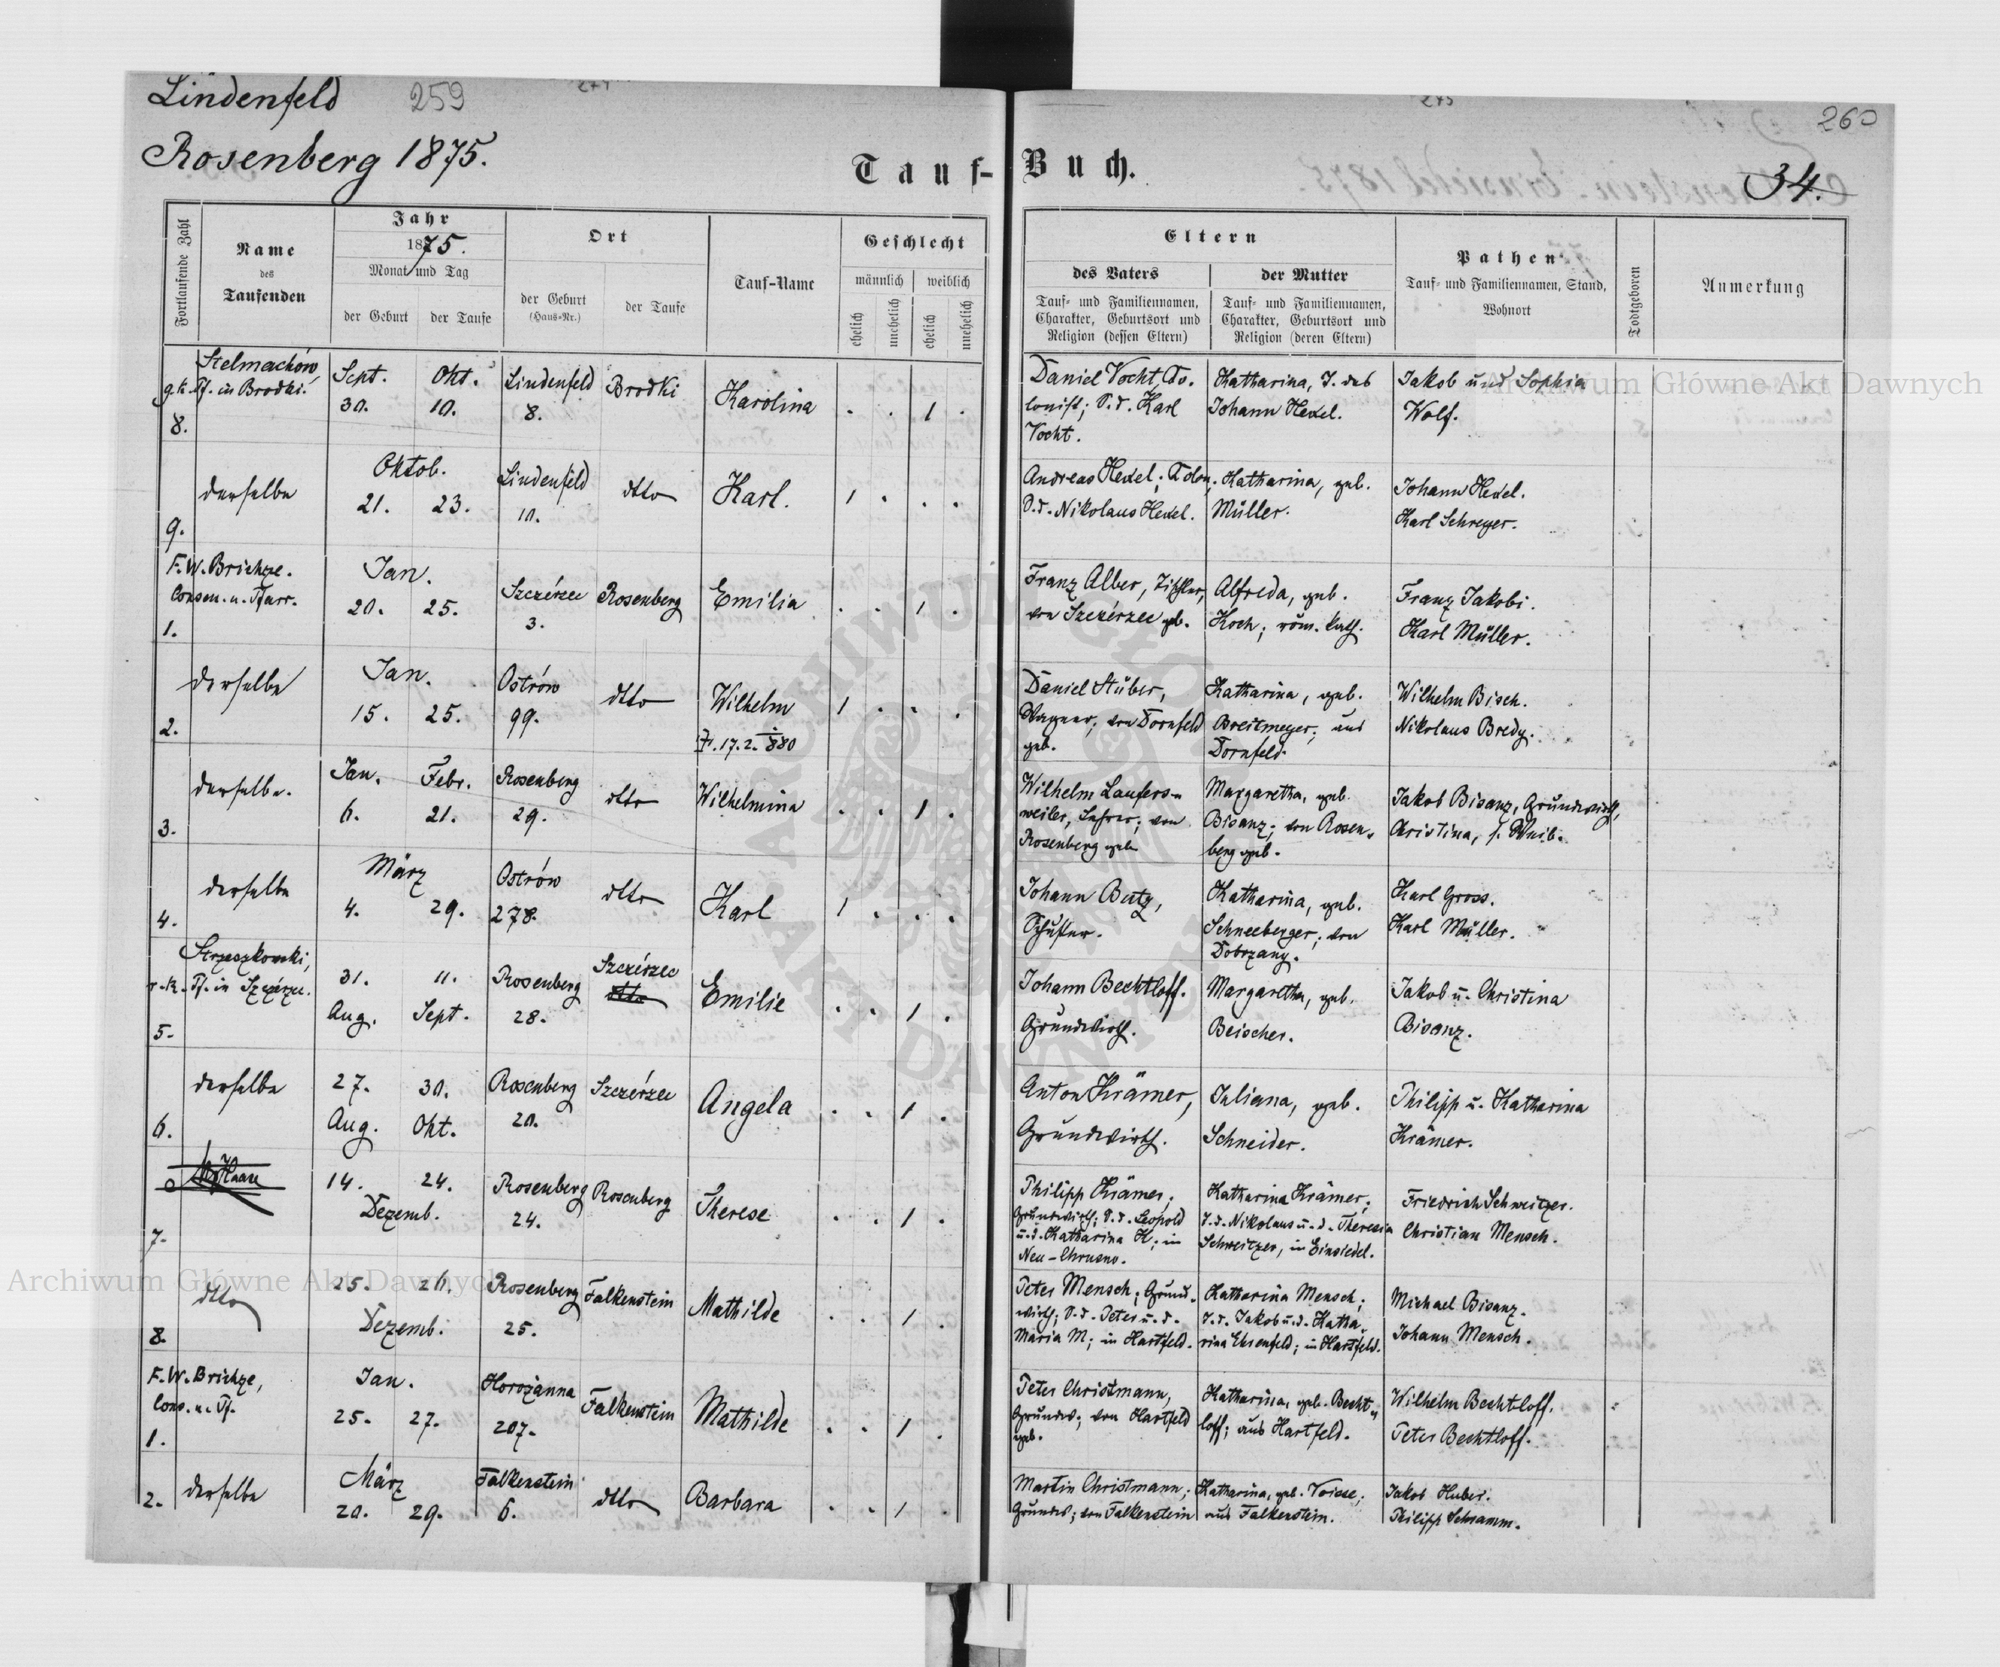 Lindenfeld 259
Rosenberg 1875.
260
34.
Tauf-Buch.
Fortlaufende Zahl
Name des Taufenden
Jahr 1875.
Monat und Tag
der Geburt
der Taufe
Ort
der Geburt (Haus-Nr.)
der Taufe
Tauf-Name
Geschlecht
männlich
weiblich
ehelich
unehelich
ehelich
unehelich
Eltern
des Vaters
Tauf- und Familiennamen, Charakter, Geburtsort und Religion (dessen Eltern)
der Mutter
Tauf- und Familiennamen, Charakter, Geburtsort und Religion (deren Eltern)
Pathen
Tauf- und Familiennamen, Stand, Wohnort
Todtgeboren
Anmerkung
8. Stelmachów, g.k. Pf. in Brodki.
Sept. 30. Okt. 10.
Lindenfeld 8.
Brodki
Karolina
. . 1 .
Daniel Vocht, Colonist; S.d. Karl Vocht.
Katharina, T. des Johann Hexel.
Jakob und Sophia Wolf.
9. derselbe
Oktob. 21. 23.
Lindenfeld 10.
dtto
Karl.
1 . . .
Andreas Hexel; Colon. S.d. Nikolaus Hexel.
Katharina, geb. Müller.
Johann Hexel.
Karl Schreyer.
1. F.W. Brichze. Consen. u. Pfarr.
Jan. 20. 25.
Szczérzec 3.
Rosenberg
Emilia
. . 1 .
Franz Alber, Tischler, von Szczérzec geb.
Alfreda, geb. Koch; röm. kath.
Franz Jakobi.
Karl Müller.
2. derselbe
Jan. 15. 25.
Ostrów 99.
dtto
Wilhelm
17.2.880
1 . . .
Daniel Stüber, Wagner, von Dornfeld geb.
Katharina, geb. Breitmeyer; aus Dornfeld.
Wilhelm Bisch.
Nikolaus Bredy.
3. derselbe.
Jan. 6. Febr. 21.
Rosenberg 29.
dtto
Wilhelmina
. . 1 .
Wilhelm Laufersweiler, Lehrer; von Rosenberg geb.
Margaretha, geb. Bisanz; von Rosenberg geb.
Jakob Bisanz, Grundwirth,
Christina, s. Weib.
4. derselbe
März 4. 29.
Ostrów 278.
dtto
Karl
1 . . .
Johann Butz, Schuster.
Katharina, geb. Schneeberger; von Dobrzany.
Karl Gross.
Karl Müller.
5. Strzeszkowski, r.k. Pf. in Szczérzec.
31. Aug. 11. Sept.
Rosenberg 28.
Szczérzec dtto
Emilie
. . 1 .
Johann Bechtloff. Grundwirth.
Margaretha, geb. Beischer.
Jakob u. Christina Bisanz.
6. derselbe
27. Aug. 30. Okt.
Rosenberg 20.
Szczérzec
Angela
. . 1 .
Anton Krämer, Grundwirth.
Juliana, geb. Schneider.
Philipp u. Katharina Krämer.
7.
14. 24. Dezemb.
Rosenberg 24.
Rosenberg
Therese
. . 1 .
Philipp Krämer, Grundwirth; S.d. Leopold u.d. Katharina K; in Neu-Chrusno.
Katharina Krämer; T.d. Nikolaus u.d. Theresia Schweitzer, in Einsiedel.
Friedrich Schweitzer.
Christian Mensch.
8. dtto
25. 26. Dezemb.
Rosenberg 25.
Falkenstein
Mathilde
. . 1 .
Peter Mensch; Grundwirth; S.d. Peter u.d. Maria M; in Hartfeld.
Katharina Mensch; T.d. Jakob u.d. Katharina Ehrenfeld; in Hartfeld.
Michael Bisanz.
Johann Mensch.
1. F.W. Brichze, Cons. u. Pf.
Jan. 25. 27.
Horożanna 207.
Falkenstein
Mathilde
. . 1 .
Peter Christmann, Grundw; von Hartfeld geb.
Katharina, geb. Bechtloff; aus Hartfeld.
Wilhelm Bechtloff.
Peter Bechtloff.
2. derselbe
März 20. 29.
Falkenstein 6.
dtto
Barbara
. . 1 .
Martin Christmann; Grundw; von Falkenstein
Katharina, geb. Voisse; aus Falkenstein.
Jakob Huber.
Philipp Schramm.
Archiwum Główne Akt Dawnych
Archiwum Główne Akt Dawnych
ARCHIWUM GŁÓWNE AKT DAWNYCH